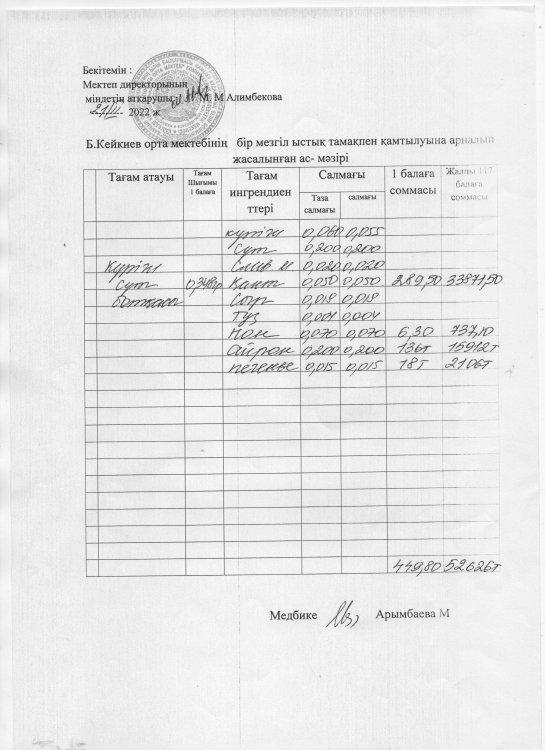 Бекітемін :
Мектеп директорының
міндетін атқарушы: М. М Алимбекова
2022 ж
Б.Кейкиев орта мектебінің бір мезгіл ыстық тамақпен қамтылуына арналып
жасалынған ас- мәзірі
Тағам атауы
Тағам Шығымы 1 балаға
Тағам ингрендиенттері
Салмағы
Таза салмағы
салмағы
1 балаға соммасы
Жалпы 117 балаға соммасы
күріш 0,060 0,055
сүт 0,200 0,200
күріш Слив м 0,020 0,020
сүт Қант 0,050 0,050 289,50 33871,50
ботқасы Сыр 0,018 0,018
тұз 0,004 0,004
Нон 0,070 0,070 6,30 737,10
Айран 0,200 0,200 136т 15912т
печенье 0,015 0,015 18т 2106т
449,80 52626т
Медбике Арымбаева М